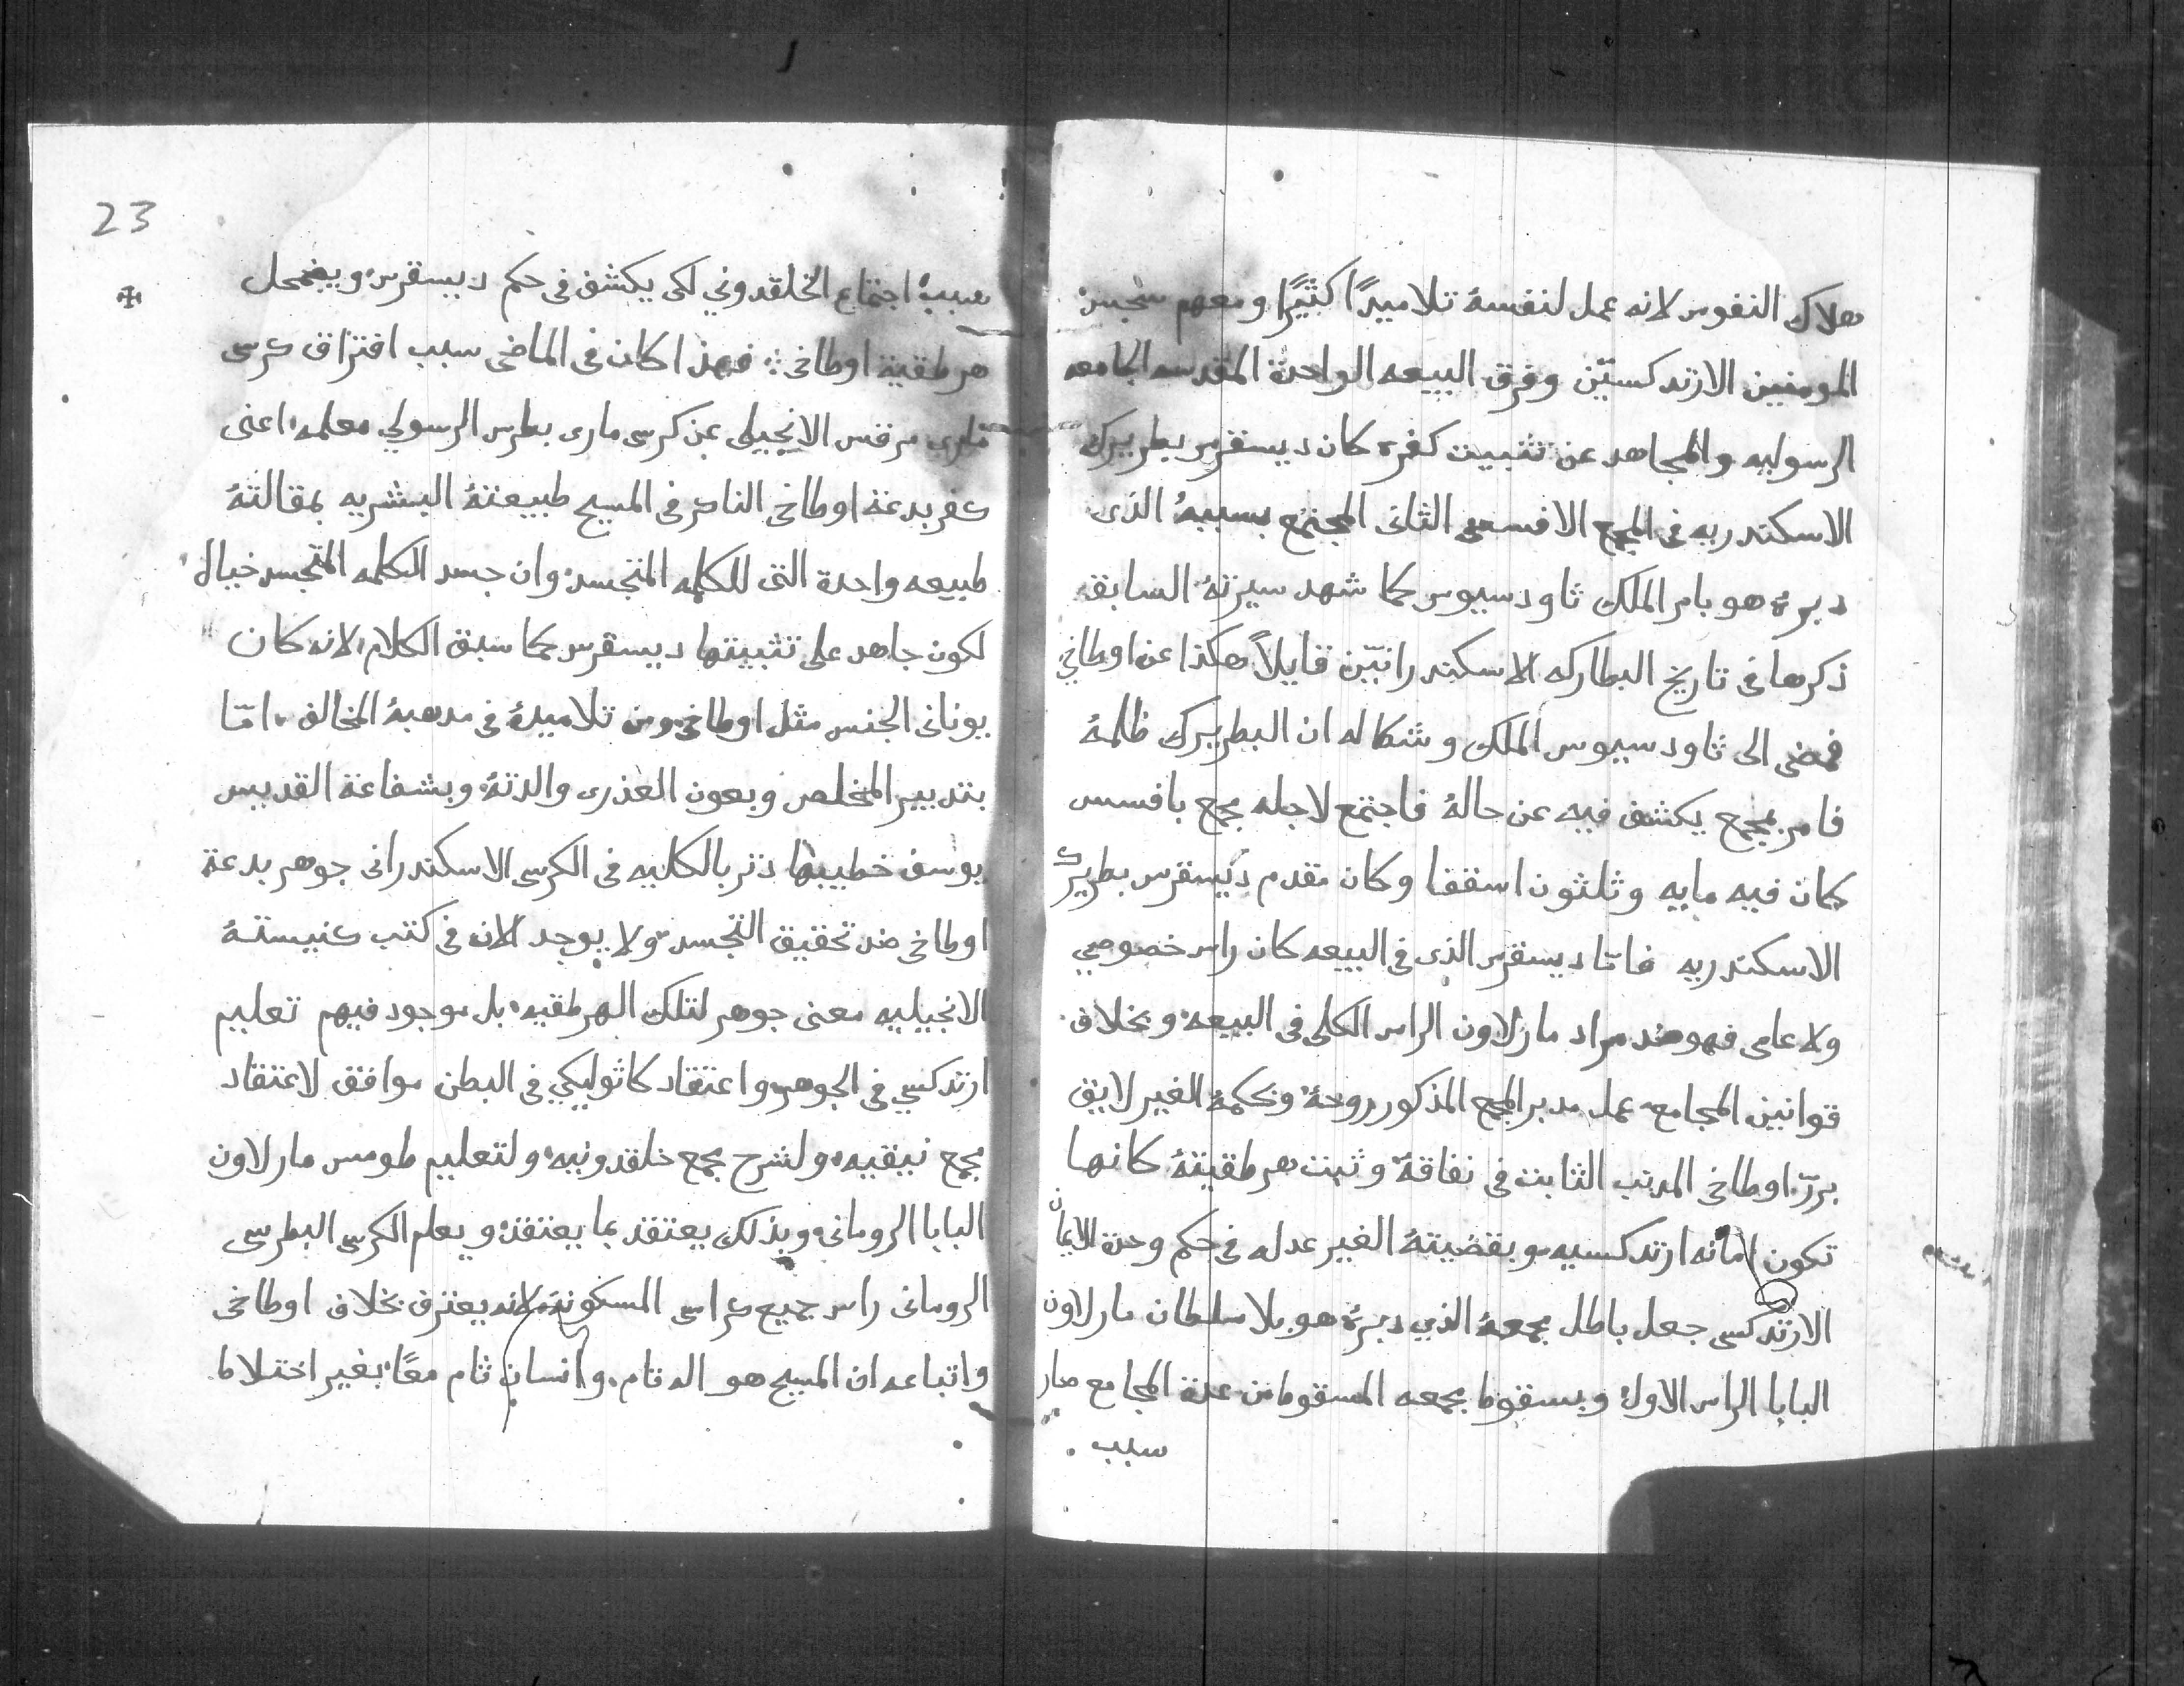 هلاك النفوس لانه عمل لنفسهُ تلاميدًا كثيرًا ومعهم سجس
المومنين الارتدكسيّن وفرق البيعه الواحدة المقدسه الجامعه
الرسوليه والمجاهد عن تثبيت كفره كان ديسقرس بطريرك
الاسكندريه فى المجمع الافسسى الثانى المجتمع بسببهُ الذى
دبرهُ هو بامر الملك ثاودسيوس كما شهد سيرتهُ السابق
ذكرها فى تاريخ البطاركه الاسكندرانيّن قايلاً هكذا عن اوطاخي
فمضى الى ثاودسيوس الملك وشكا له ان البطريرك ظلمهُ
فامر بمجمع يكشف فيه عن حالهُ فاجتمع لاجله مجمع بافسس
كان فيه مايه وثلثون اسقفا وكان مقدم ديسقرس بطريرك
الاسكندريه فامّا ديسقرس الذى فى البيعه كان راس خصوصي
ولا عامى فهو ضد مراد مار لاون الراس الكلى فى البيعه وبخلاف
قوانين المجامع عمل مدبر المجمع المذكور روحهُ وبحكمهُ الغير لايق
برّر اوطاخى المرتب الثابت فى نفاقهُ وثبت هرطقيتهُ كانها
تكون امانه ارتدكسيه وبقضيتهُ الغير عدله فى حكم وحدة الايمان
الارتدكسى جعل باطل مجمعهُ الذي دبرهُ هو بلا سلطان مار لاون
البابا الراس الاول وبسقوط مجمعه المسقوط من عدة المجامع صار
سبب
23
سببهُ اجتماع الخلقدوني لكى يكشف فى حكم ديسقرس ويضمحل
هرطقية اوطاخى فهذا كان فى الماضى سبب افتراق كرسى
مارى مرقس الانجيلى عن كرسى مارى بطرس الرسولي معلمه اعنى
كفر بدعة اوطاخى الناكر فى المسيح طبيعتهُ البشريه بمقالتهُ
طبيعه واحدة التى للكلمه المتجسد وان جسد الكلمه المتجسد خيال
لكون جاهد على تثبيتها ديسقرس كما سبق الكلام لانه كان
يونانى الجنس مثل اوطاخى ومن تلاميدهُ فى مدهبهُ المخالف امّا
بتدبير المخلص وبعون العذرى والدتهُ وبشفاعة القديس
يوسف خطيبها دثر بالكليه فى الكرسى الاسكندرانى جوهر بدعة
اوطاخى ضد تحقيق التجسد ولا يوجد الان فى كتب كنيستهُ
الانجيليه معنى جوهر لتلك الهرطقيه بل موجود فيهم تعليم
ارتدكسي فى الجوهر واعتقاد كاثوليكي فى البطن موافق لاعتقاد
مجمع نيقيه ولشرح مجمع خلقدونيه ولتعليم طومس مار لاون
البابا الرومانى وبذلك يعتقد بما يعتقدهُ ويعلم الكرسى البطرسى
الرومانى راس جميع كراسى المسكونة لانه يعترف بخلاف اوطاخى
واتباعه ان المسيح هو اله تام وانسان تام معًا بغير اختلاط